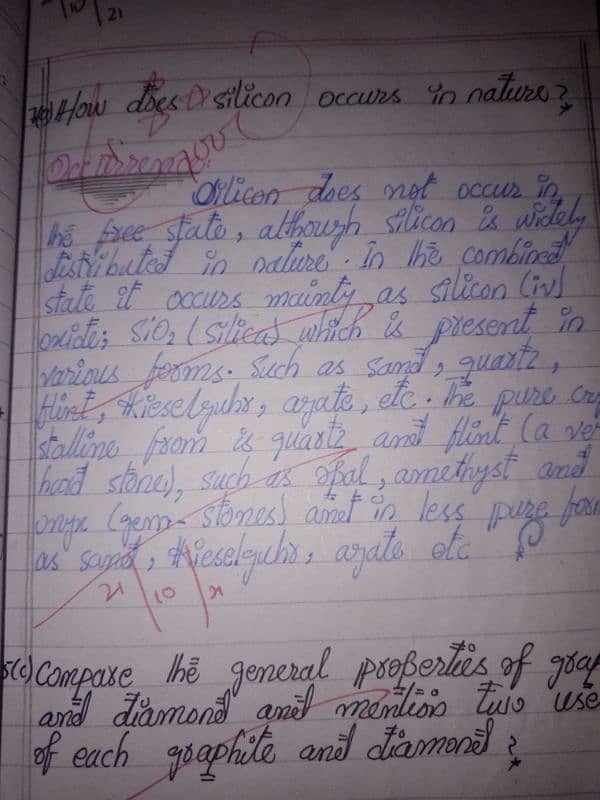 10/21
7(a) How does silicon occurs in nature?
Occurrence:
Silicon does not occur in
the free state, although silicon is widely
distributed in nature. In the combined
state it occurs mainly as silicon (iv)
oxide; SiO₂ (silica) which is present in
various forms. Such as sand, quartz,
flint, Kieselguhr, agate, etc. The pure cry
stalline from is quartz and flint (a ver
hard stone), such as opal, amethyst and
onyx (gem-stones) and in less pure form
as sand, Kieselguhr, agate etc
21/10/21
5(c) Compare the general properties of grap
and diamond and mention two use
of each graphite and diamond?